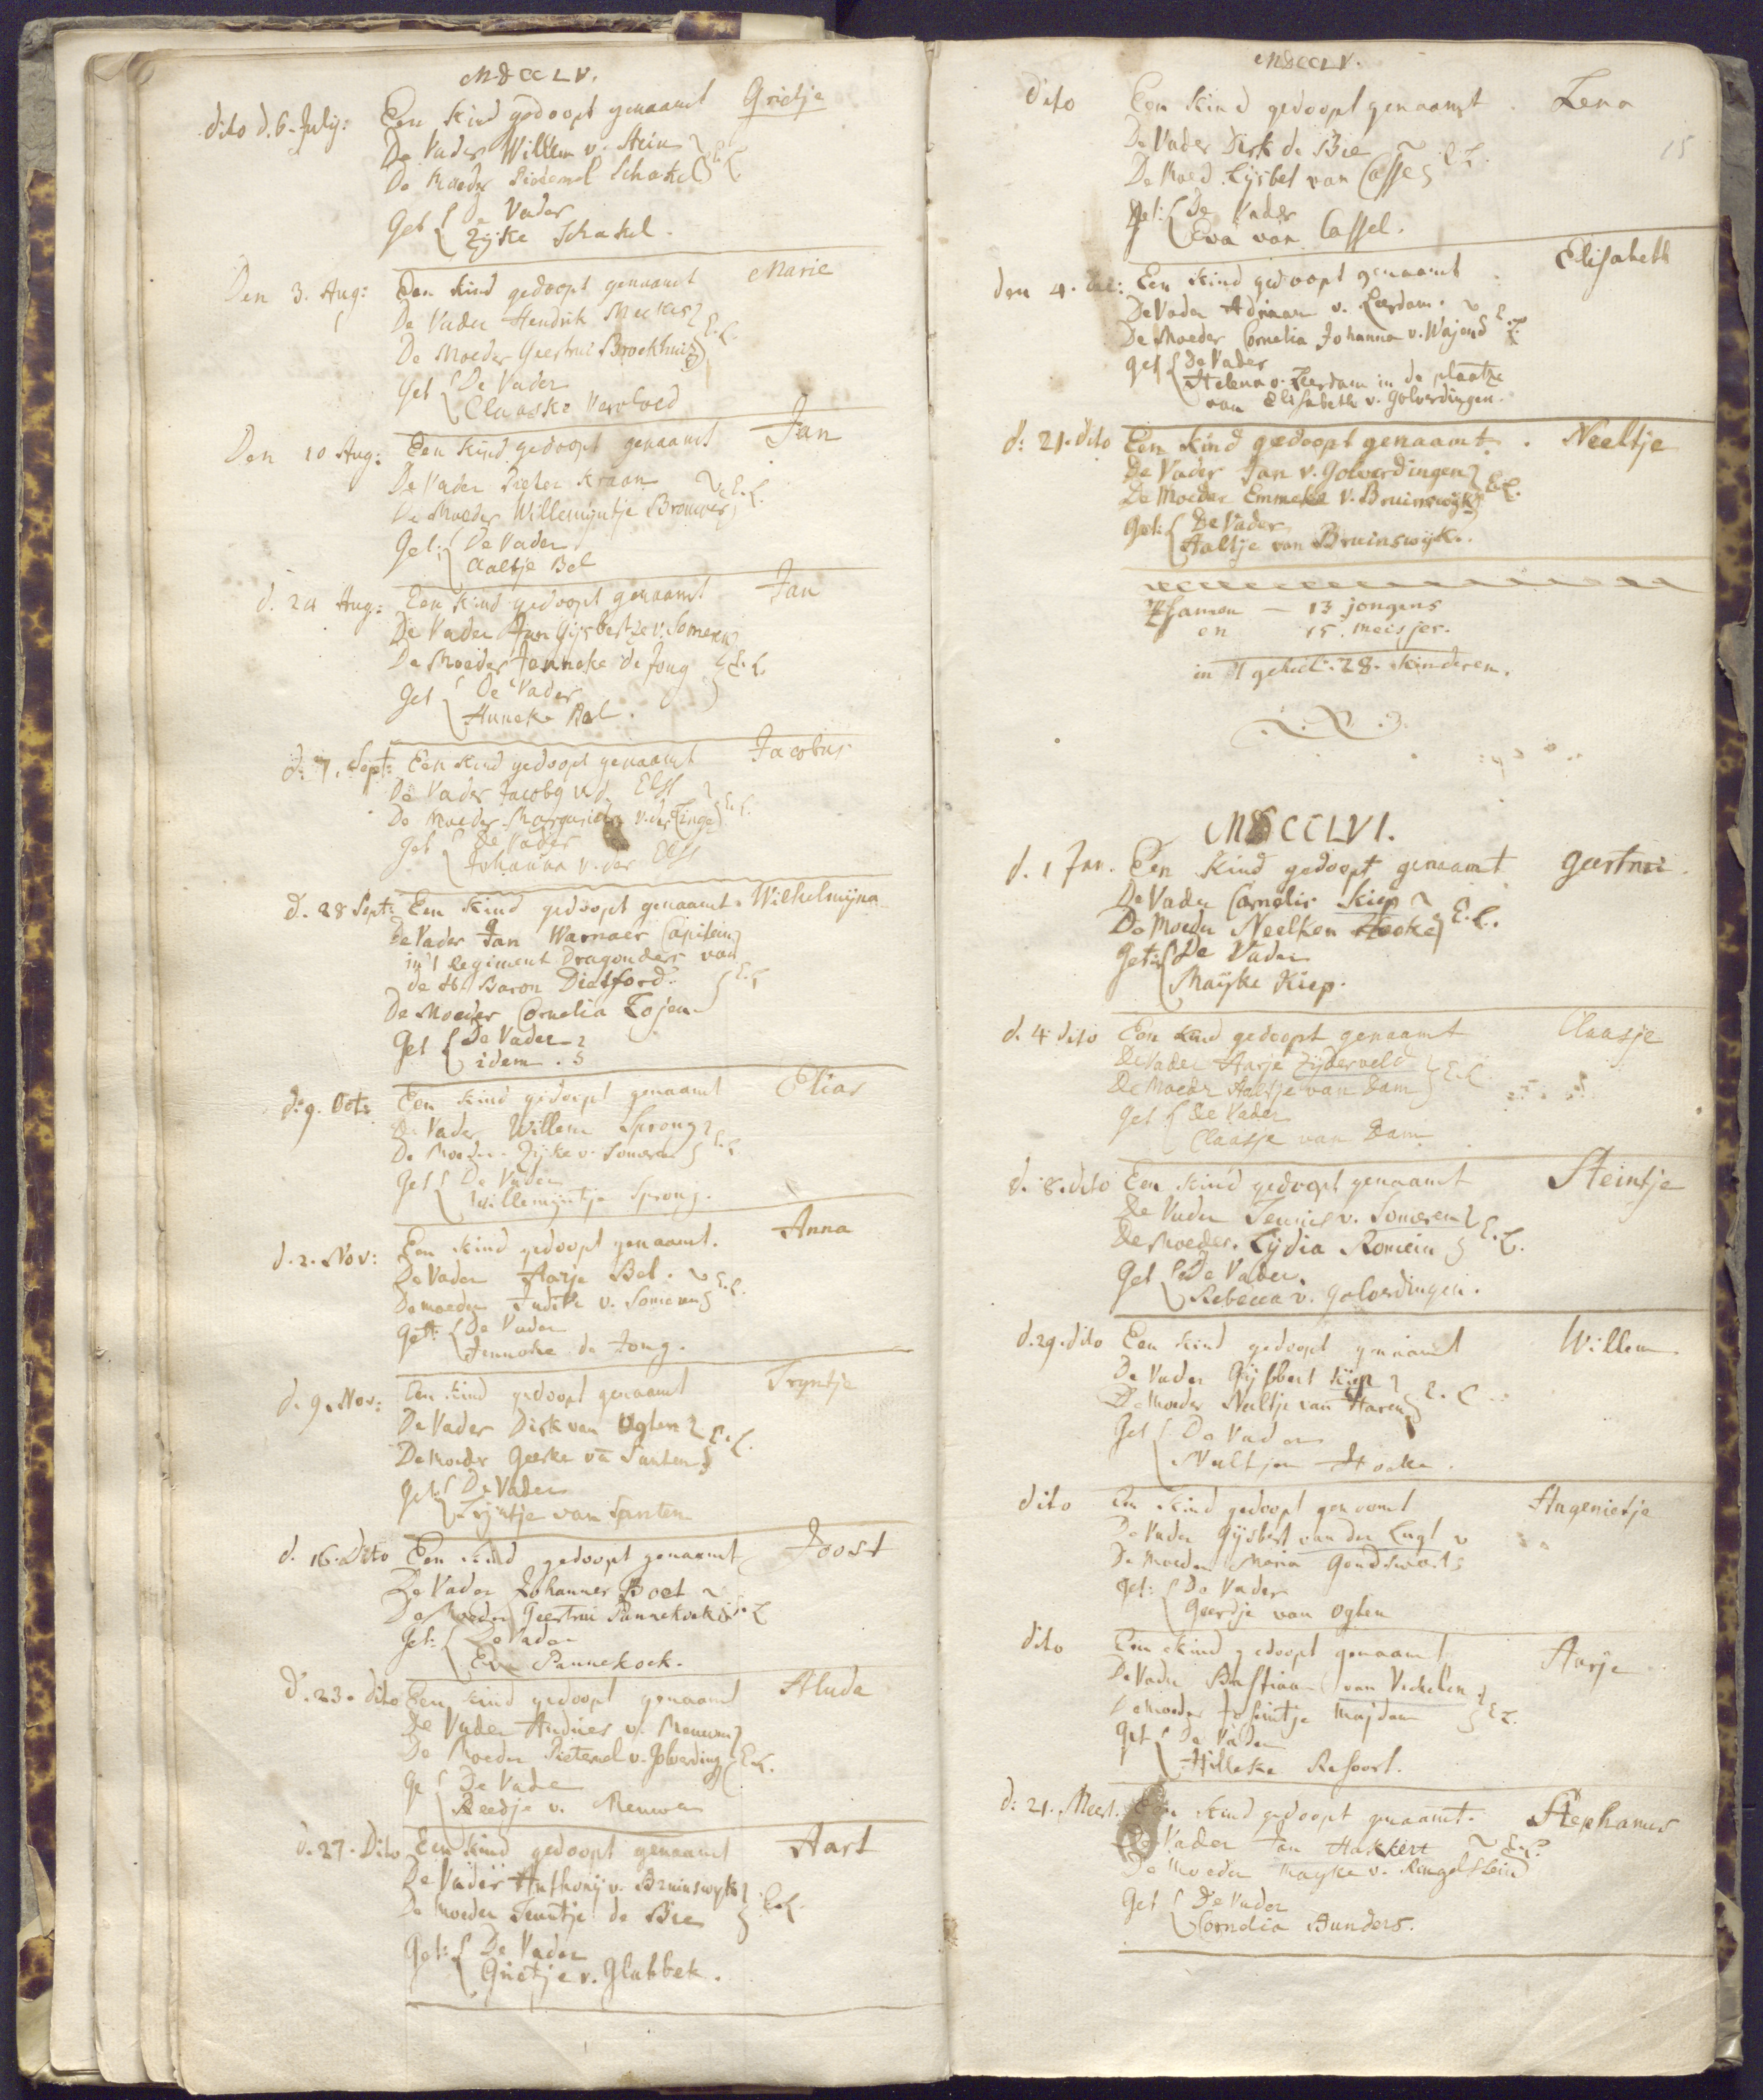 MDCCLV.
dito d. 6. July: Een kind gedoopt genaamt Grietje
De Vader Willem v. Stein
De Moeder Pieternel Schakel E.L.
Get De Vader
Zijke Schakel.
Den 3. Aug: Een kind gedoopt genaamt Marie
De Vader Hendrik Meerkes
De Moeder Geertrui Broekhuis E.L.
Get De Vader
Claaske
Den 10 Aug: Een kind gedoopt genaamt Jan
De Vader Pieter Kraan
De Moeder Willemijntje Brouwer E.L.
Get: De Vader
Aaltje Bel
d. 24 Aug: Een kind gedoopt genaamt Jan
De Vader Jan Gijsbertze v. Someren
De Moeder Jenneke de Jong E.L.
Get De Vader
Anneke Bel.
d: 7. Sept: Een kind gedoopt genaamt Jacobus
De Vader Jacobg v.d. Elst
De Moeder v. der E.L.
Get De Vader
Johanna v. der Elst
d. 28 Sept: Een kind gedoopt genaamt. Wilhelmijna
De Vader Jan Warnaer Capitein
in 't Regiment Dragonders van
de H. Baron Dietford. E.L
De Moeder Cornelia Tojen
Get De Vader
idem.
d: 9. Oct: Een kind gedoopt genaamt Elias
De Vader Willem Sprong
De Moeder Zijke v. Someren E.L
Get De Vader
Willemijntje Sprong.
d. 2. Nov: Een kind gedoopt genaamt. Anna
De Vader Aarje Bel.
De moeder Judith v. Someren E.L.
Gett: De Vader
Jenneke de Jong.
d. 9. Nov: Een kind gedoopt genaamt Tryntje
De Vader Dirk van Ogten E.L.
De Moeder Geerke vā Santen
Get: De Vader
Trijntje van Santen
d. 16. Dito Een kind gedoopt genaamt Joost
De Vader Johannes Boet
De Moeder Geertrui Pannekoek E.L
Get: De Vader
Eva Pannekoek.
d. 23. dito Een kind gedoopt genaamt Aluda
De Vader Andries v. Meuwen
De Moeder Pieternel v. Golverding E.L.
Ge De Vader
v.
d. 27. Dito Een kind gedoopt genaamt Aart
De Vader Anthonij v. Bruinswyk
De Moeder Teuntje de Bie E.L.
Get: De Vader
Grietje v. Glabbek.
MDCCLV.
15
dito Een kind gedoopt genaamt. Lena
De Vader Dirk de Bie
De Moed. Lijsbet van Cassel E.L.
Get: De Vader
Eva van Cassel.
den 4. Een kind gedoopt genaamt. Elisabeth
De Vader Adriaan v. Leerdam.
De Moeder Cornelia Johanna v. Wajend E.L.
Get De Vader
Helena v. Leerdam in de plaatze
van Elisabeth v. Golverdingen.
d: 21. dito Een kind gedoopt genaamt. Neeltje
De Vader Jan v. Golverdingen
De Moeder Emmeke v. Bruinswijk E.L.
Get: De Vader
Aaltje van Bruinswijk.
Tsamen — 13 jongens
en 15 meisjes.
in 't geheel. 28. kinderen.
MDCCLVI.
d. 1 Jan. Een kind gedoopt genaamt geertrui.
De Vader Cornelis Kiep
De Moeder Neelken Hoeke E.L.
Get: De Vader
Mayke Kiep.
d. 4 dito Een kind gedoopt genaamt Claasje
De Vader Aarje Zijderveld
De Moeder Aaltje van Dam E.L
Get De Vader
Claasje van Dam
d. 8. dito Een kind gedoopt genaamt Steintje
De Vader Teunis v. Someren
De Moeder. Lydia Romein E.L.
Get De Vader.
Rebecca v. Golverdingen.
d. 29. dito Een kind gedoopt genaamt Willem
De Vader Gijsbert Kiep
De Moeder Neeltje van Haren E.L.
Get De Vader
Neeltje Hoeke.
dito Een kind gedoopt genaamt Angenietje
De Vader Gijsbert van der Lugt
De Moeder Maria Goudswart
Get: De Vader
Geertje van Ogten
dito Een kind gedoopt genaamt Aarje
De Vader Bastiaan van
De Moeder Majdam E.L.
Get De Vader
Hilleke Refoort.
d: 21. Meert. Een kind gedoopt genaamt. Stephanus
De Vader Jan Hakkert E.L.
De Moeder Mayke v. Ringelstein
Get De Vader
Cornelia Aunders.